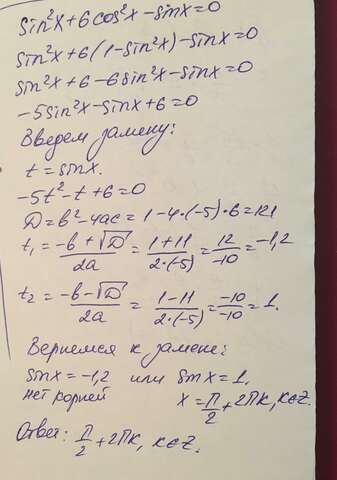 sin²x+6cos²x-sinx=0
sin²x+6(1-sin²x)-sinx=0
sin²x+6-6sin²x-sinx=0
-5sin²x-sinx+6=0
Введем замену:
t=sinx.
-5t²-t+6=0
D=b²-4ac=1-4·(-5)·6=121
t₁=(-b+√D)/2a=(1+11)/2·(-5)=12/-10=-1,2
t₂=(-b-√D)/2a=(1-11)/2·(-5)=-10/-10=1.
Вернемся к замене:
sinx=-1,2 или sinx=1.
нет корней x=π/2+2πk, k∈Z.
Ответ: π/2+2πk, k∈Z.